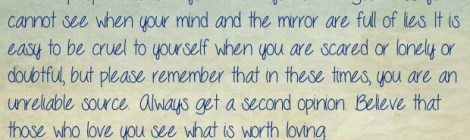 cannot see when your mind and the mirror are full of lies. It is
easy to be cruel to yourself when you are scared or lonely or
doubtful, but please remember that in these times, you are an
unreliable source. Always get a second opinion. Believe that
those who love you see what is worth loving.